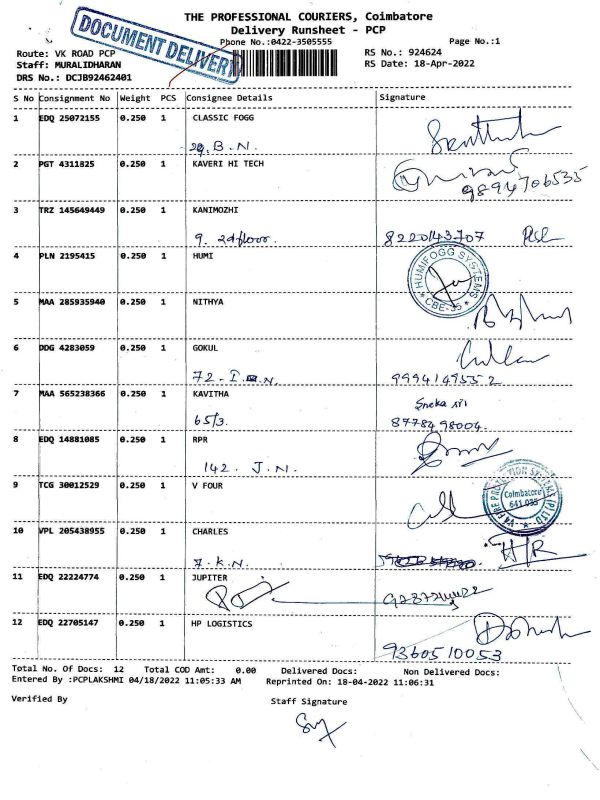 THE PROFESSIONAL COURIERS, Coimbatore
Delivery Runsheet - PCP
DOCUMENT DELIVERY
Phone No.:0422-3505555 Page No.:1
Route: VK ROAD PCP RS No.: 924624
Staff: MURALIDHARAN RS Date: 18-Apr-2022
DRS No.: DCJB92462401
S No Consignment No Weight PCS Consignee Details Signature
1 EDQ 25072155 0.250 1 CLASSIC FOGG
29. B. N.
2 PGT 4311825 0.250 1 KAVERI HI TECH
9894706535
3 TRZ 145649449 0.250 1 KANIMOZHI
9. 2d floor. 8220143707
4 PLN 2195415 0.250 1 HUMI
HUMIFOGG SYSTEMS * CBE-35 *
5 MAA 285935940 0.250 1 NITHYA
6 DDG 4283059 0.250 1 GOKUL
72- I N. 9994149552
7 MAA 565238366 0.250 1 KAVITHA
Sneka sri
65/3. 8778498004.
8 EDQ 14881085 0.250 1 RPR
142. J.N.
9 TCG 30012529 0.250 1 V FOUR
V4 FIRE PROTECTION SYSTEMS (P) LTD
Coimbatore
641 035
10 VPL 205438955 0.250 1 CHARLES
7. K.N. H/R
11 EDQ 22224774 0.250 1 JUPITER
12 EDQ 22705147 0.250 1 HP LOGISTICS
9360510053
Total No. Of Docs: 12 Total COD Amt: 0.00 Delivered Docs: Non Delivered Docs:
Entered By :PCPLAKSHMI 04/18/2022 11:05:33 AM Reprinted On: 18-04-2022 11:06:31
Verified By Staff Signature